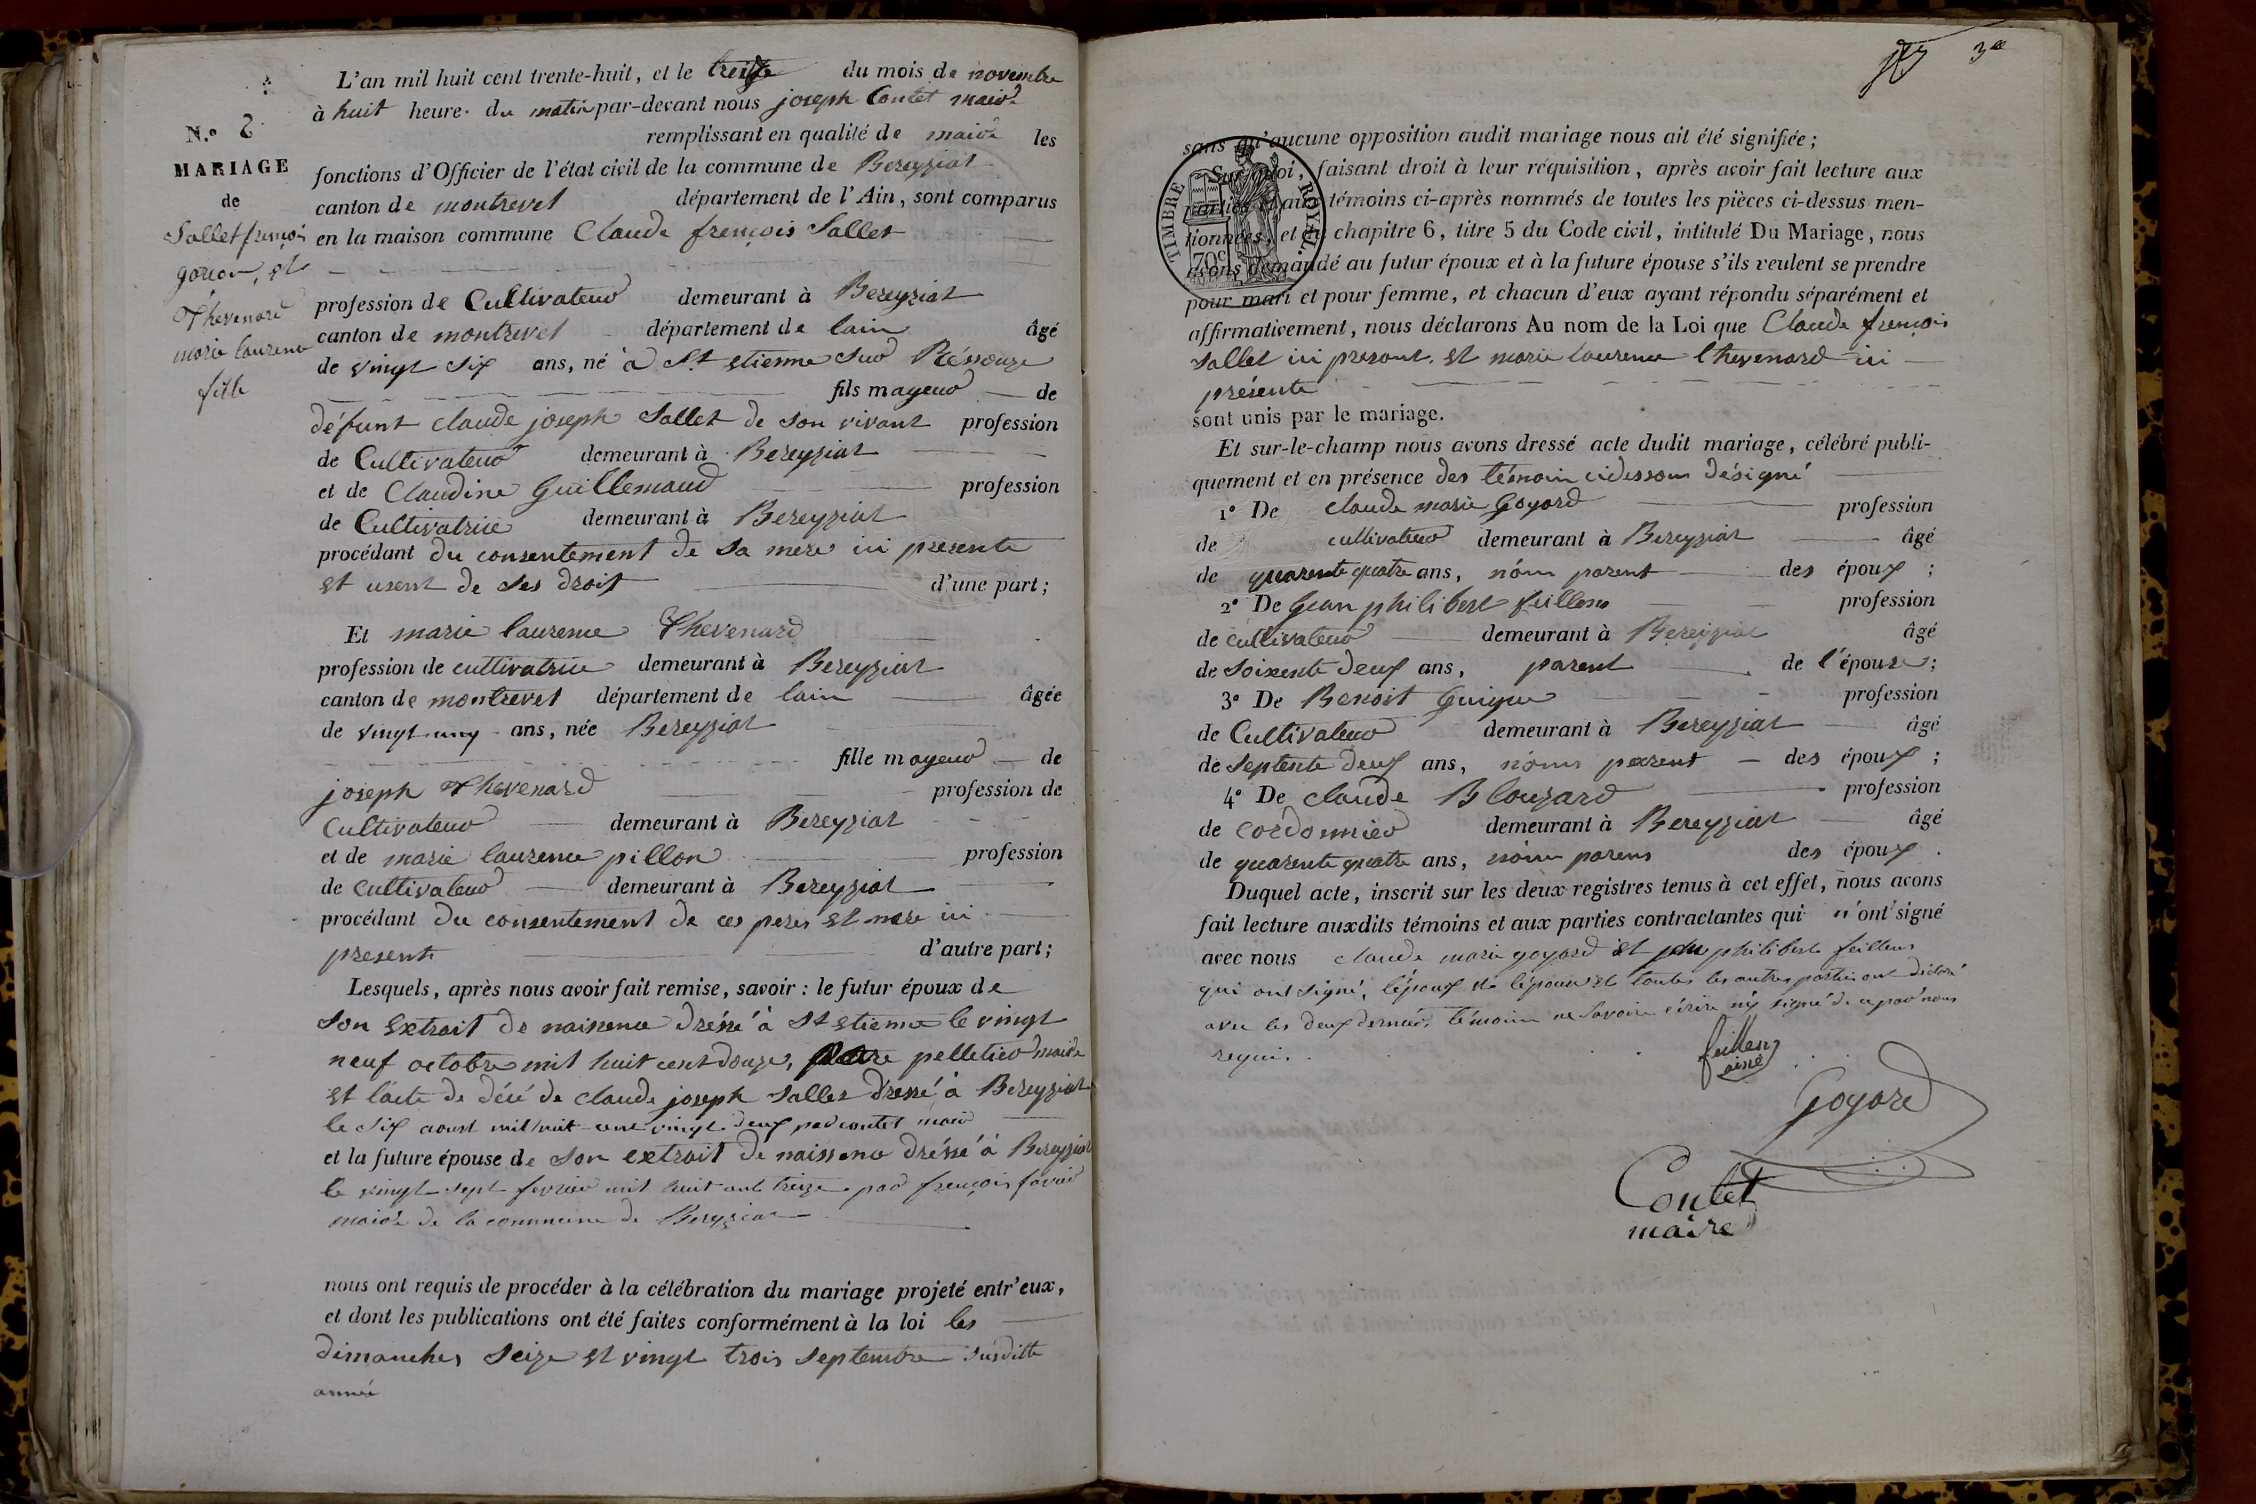 N.° 2
MARIAGE
de
Sallet françois
garçon, et
Thevenard
marie laurence
fille
L'an mil huit cent trente-huit, et le treize du mois de novembre
à huit heure du matin par-devant nous joseph Contet maire
remplissant en qualité de maire les
fonctions d'Officier de l'état civil de la commune de Bereyziat
canton de montrevel département de l'Ain, sont comparus
en la maison commune Claude françois Sallet
profession de Cultivateur demeurant à Bereyziat
canton de montrevel département de lain âgé
de vingt six ans, né à St etienne sur Réssouze
fils mageur de
défunt claude joseph Sallet de son vivant profession
de Cultivateur demeurant à Bereyziat
et de Claudine Guillemaud profession
de Cultivatrice demeurant à Bereyziat
procédant du consentement de sa mere ici presente
et usent de ses droit d'une part;
Et marie laurence Thevenard
profession de cultivatrice demeurant à Bereyziat
canton de montrevel département de lain âgée
de vingt-uny ans, née Bereyziat
fille mageur de
joseph Thevenard profession de
Cultivateur demeurant à Bereyziat
et de marie laurence pillon profession
de cultivateur demeurant à Bereyziat
procédant du consentement de ces peres et mere ici
presente d'autre part;
Lesquels, après nous avoir fait remise, savoir : le futur époux de
son extrait de naissence dréssé à St etienne le vingt
neuf octobre mil huit cent douze, pelletier maire
et l'acte de décé de claude joseph Sallet dressé à Bereyziat
le six aoust mil huit cent vingt deux par contet maire
et la future épouse de son extrait de naissence dréssé à Bereyziat
le vingt-sept fevrier mil huit cent treize par françois favier
maire de la commune de Bereyziat
nous ont requis de procéder à la célébration du mariage projeté entr'eux,
et dont les publications ont été faites conformément à la loi les
dimanches seize et vingt trois septembre susditte
année
3e
sans qu'aucune opposition audit mariage nous ait été signifiée;
Sur quoi, faisant droit à leur réquisition, après avoir fait lecture aux
parties et aux témoins ci-après nommés de toutes les pièces ci-dessus men-
tionnées, et du chapitre 6, titre 5 du Code civil, intitulé Du Mariage, nous
avons demandé au futur époux et à la future épouse s'ils veulent se prendre
TIMBRE ROYAL
70c
pour mari et pour femme, et chacun d'eux ayant répondu séparément et
affirmativement, nous déclarons Au nom de la Loi que Claude françois
Sallet ici present et marie laurence thevenard ici
présente
sont unis par le mariage.
Et sur-le-champ nous avons dressé acte dudit mariage, célébré publi-
quement et en présence des témoin cidessous désigné
1° De claude marie Goyard profession
de cultivateur demeurant à Bereyziat âgé
de quarente quatre ans, parent des époux ;
2° De Jean philibert feillens profession
de cultivateur demeurant à Bereyziat âgé
de soixente deux ans, parent de l'épouse;
3° De Benoit Guigue profession
de Cultivateur demeurant à Bereyziat âgé
de septente deux ans, parent des époux ;
4° De claude Blouzard profession
de cordonnier demeurant à Bereyziat âgé
de quarente quatre ans, parens des époux .
Duquel acte, inscrit sur les deux registres tenus à cet effet, nous avons
fait lecture auxdits témoins et aux parties contractantes qui n'ont signé
avec nous claude marie goyard et jean philibert feillens
qui ont signé, l'époux et l'épouse et toutes les autres parties ont déclaré
avec les deux dernier témoin ne savoire écrire ny signé de ce par nous
requis.
feillens
aîné
Goyard
Contet
maire